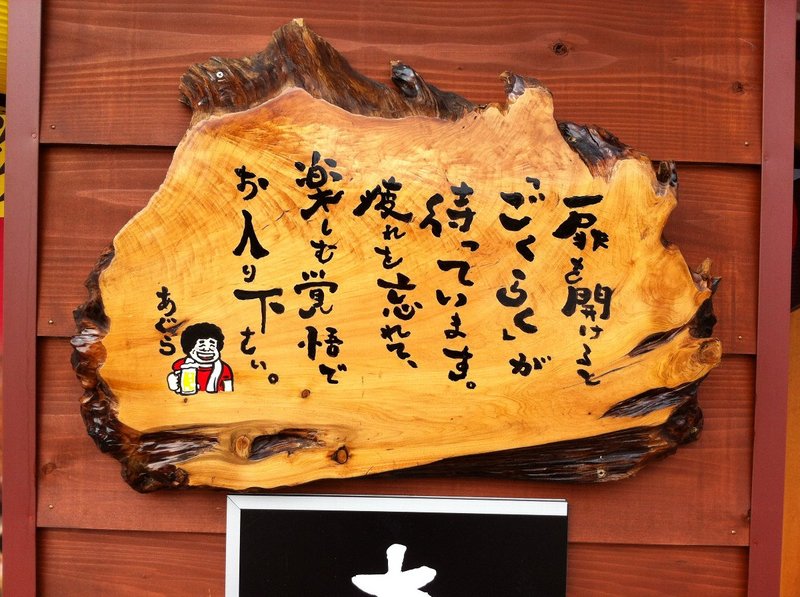 扉を開けると
「ごくらく」が
待っています。
疲れを忘れて、
楽しむ覚悟で
お入り下さい。
あぐら